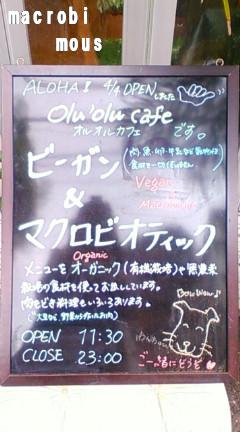 macrobi
mous
ALOHA! 4/4 OPENしました
Olu'olu cafe
オルオルカフェ です。
ビーガン
(肉・魚・卵・牛乳など動物性
食材を一切使いません)
Vegan
&
マクロビオティック
Organic
メニューをオーガニック(有機栽培)や無農薬
栽培の食材を使ってお出ししています。
肉もどき料理もいろいろあります。
Bow Wow!!
OPEN 11:30
CLOSE 23:00
ご一緒にどうぞ